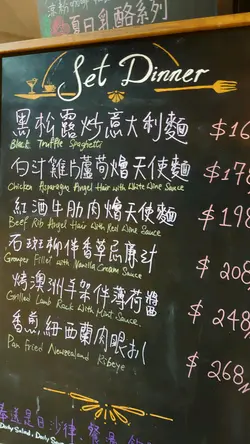 夏日乳酪系列
Set Dinner
黑松露炒意大利麵 $16
Black Truffle Spaghetti
白汁雞片蘆荀燴天使麵 $178
Chicken Asparagus Angel Hair with White Wine Sauce
紅酒牛肋肉燴天使麵 $198
Beef Rib Angel Hair with Red Wine Sauce
石斑柳伴香草忌廉汁 $208
Grouper Fillet with Vanilla Cream Sauce
烤澳洲羊架伴薄荷醬 $248
Grilled Lamb Rack with Mint Sauce
香煎紐西蘭肉眼扒 $268
Pan Fried Newzealand Ribeye
奉送是日沙律, 餐湯
Daily Salad, Daily Soup